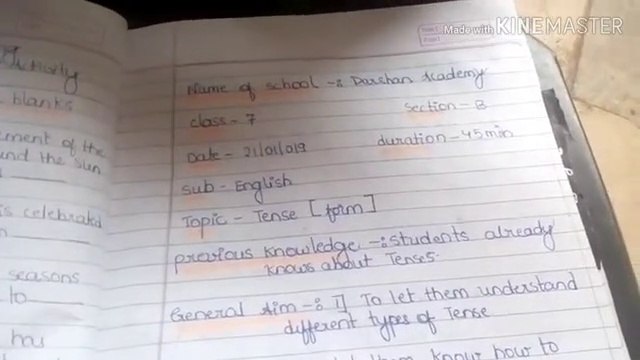 Made with KINEMASTER
Activity
blanks
ement of the
und the sun
is celebrated
seasons
to
has
Name of school -: Darshan Academy
class - 7
section - B
Date - 21/01/019
duration - 45 min
sub - English
Topic - Tense [form]
previous knowledge -: students already
knows about Tenses.
General Aim -: 1] To let them understand
different types of Tense
them know how to